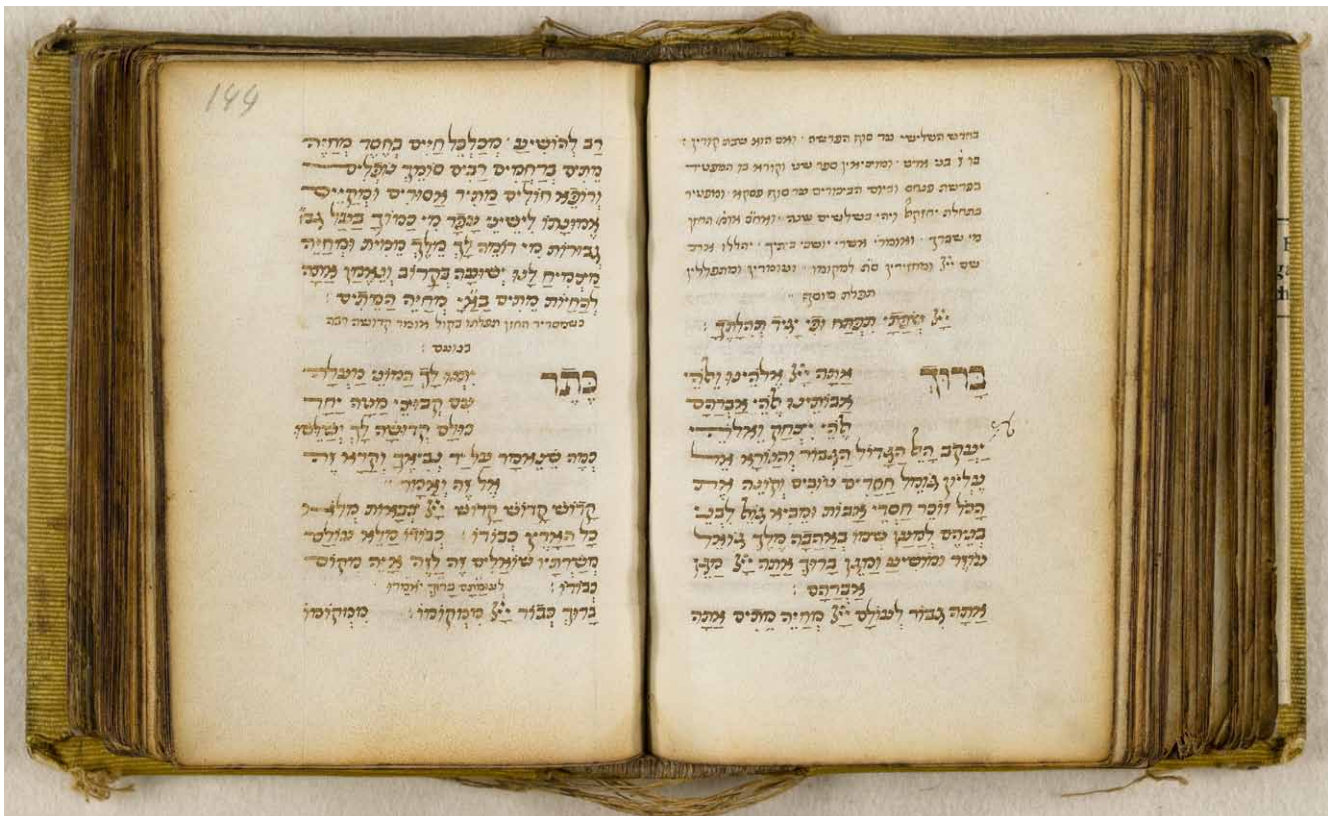 בחדש השלישי עד סוף הפרשה ואם הוא שבת קורין
בו ז בני אדם ומוציאין ספר שני וקורא בו המפטיר
בפרשת פנחס וביום הביכורים עד סוף פסקא ומפטיר
בתחלת יחזקאל ויהי בשלשים שנה ואח״כ אומ׳ החזן
מי שברך ואומרי׳ אשרי יושבי ביתיך יהללו את
שם ייי ומחזירין ס״ת למקומו ועומדין ומתפללין
תפלת מוסף
ייי שְׂפָתַי תִּפְתָּח וּפִי יַגִּיד תְּהִלָּתֶךָ :
בָּרוּךְ אַתָּה ייי אֱלֹהֵינוּ וֵאלֹהֵי
אֲבוֹתֵינוּ אֱלֹהֵי אַבְרָהָם
אֱלֹהֵי יִצְחָק וֵאלֹהֵי
יַעֲקֹב הָאֵל הַגָּדוֹל הַגִּבּוֹר וְהַנּוֹרָא אֵל
עֶלְיוֹן גּוֹמֵל חֲסָדִים טוֹבִים וְקוֹנֵה אֶת
הַכֹּל זוֹכֵר חַסְדֵי אָבוֹת וּמֵבִיא גּוֹאֵל לִבְנֵי
בְנֵיהֶם לְמַעַן שְׁמוֹ בְּאַהֲבָה מֶלֶךְ גּוֹאֵל
עוֹזֵר וּמוֹשִׁיעַ וּמָגֵן בָּרוּךְ אַתָּה ייי מָגֵן
אַבְרָהָם :
אַתָּה גִבּוֹר לְעוֹלָם ייי מְחַיֵּה מֵתִים אַתָּה
144
רַב לְהוֹשִׁיעַ מְכַלְכֵּל חַיִּים בְּחֶסֶד מְחַיֵּה
מֵתִים בְּרַחֲמִים רַבִּים סוֹמֵךְ נוֹפְלִים
וְרוֹפֵא חוֹלִים מַתִּיר אֲסוּרִים וּמְקַיֵּים
אֱמוּנָתוֹ לִישֵׁינֵי עָפָר מִי כָמוֹךָ בַּעַל
גְּבוּרוֹת מִי דוֹמֶה לָךְ מֶלֶךְ מֵמִית וּמְחַיֶּה
מַצְמִיחַ לָנוּ יְשׁוּעָה בְּקָרוֹב וְנֶאֱמָן אַתָּה
לְהַחֲיוֹת מֵתִים בָּא״יָ מְחַיֵּה הַמֵּתִים :
כשמסדיר החזן תפלתו בקול אומר קדושה רבה
בנועם :
כֶּתֶר יִתְּנוּ לָךְ הֲמוֹנֵי מַעְלָה
עִם קְבוּצֵי מַטָּה יַחַד
כּוּלָּם קְדוּשָּׁה לָךְ יְשַׁלֵּשׁוּ
כְּמָה שֶׁנֶּאֱמַר עַל יַד נְבִיאָךְ וְקָרָא זֶה
אֶל זֶה וְאָמַר
קָדוֹשׁ קָדוֹשׁ קָדוֹשׁ ייי צְבָאוֹת מְלֹא
כָל הָאָרֶץ כְּבוֹדוֹ : כְּבוֹדוֹ מָלֵא עוֹלָם
מְשָׁרְתָיו שׁוֹאֲלִים זֶה לָזֶה אַיֵּה מְקוֹם
כְּבוֹדוֹ : לעומתם ברוך יאמרו
בָּרוּךְ כְּבוֹד ייי מִמְּקוֹמוֹ : מִמְּקוֹמוֹ